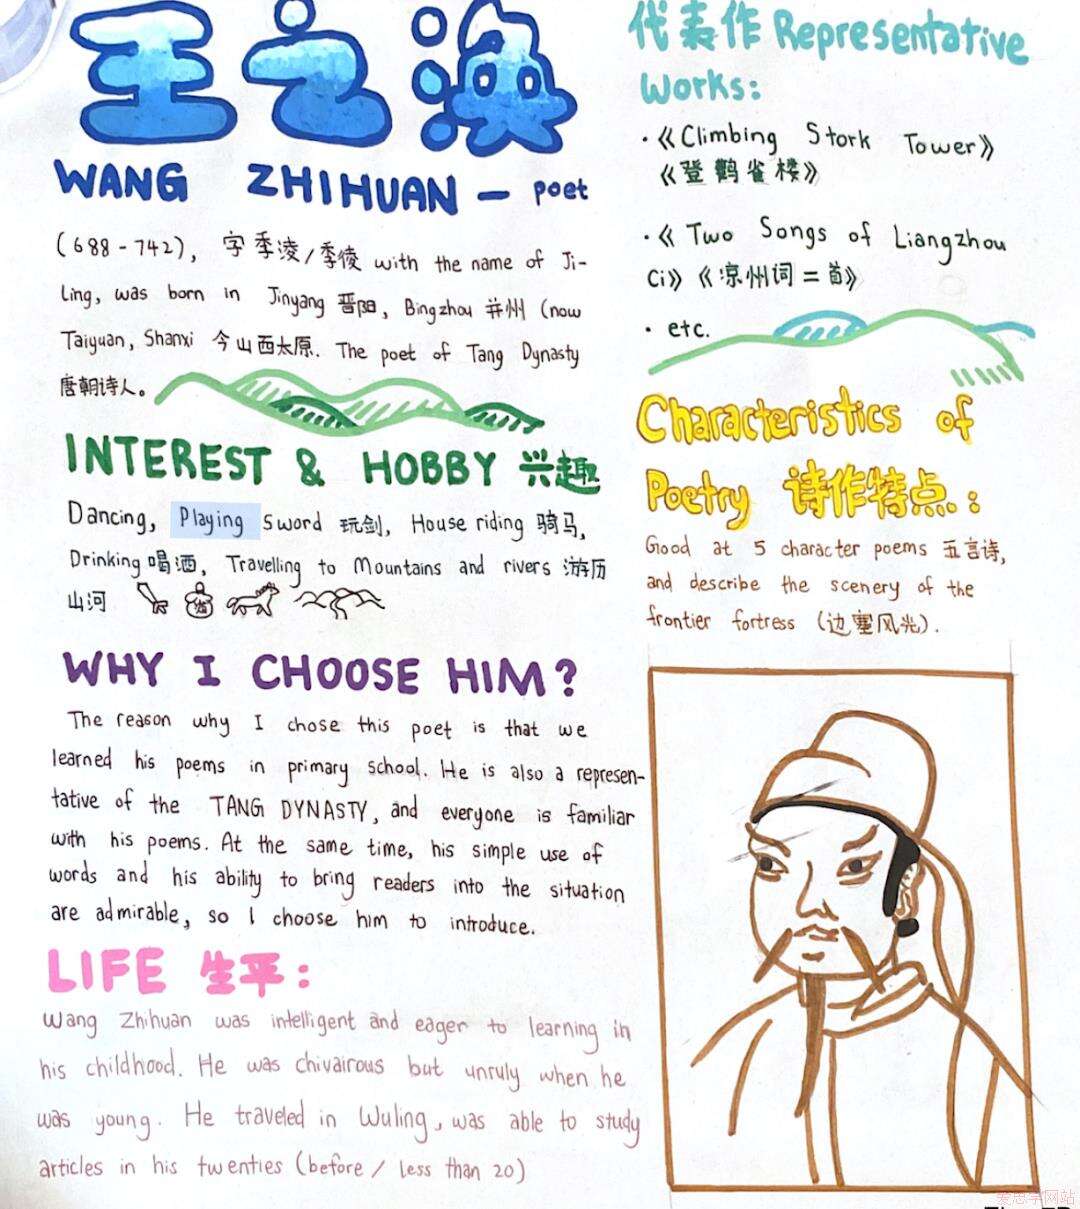 王之涣
WANG ZHIHUAN - poet
(688-742), 字季淩/季倰 with the name of Ji-
Ling, was born in Jinyang 晋阳, Bingzhou 并州 (now
Taiyuan, Shanxi 今山西太原. The poet of Tang Dynasty
唐朝诗人。
INTEREST & HOBBY 兴趣
Dancing, Playing Sword 玩剑, House riding 骑马,
Drinking 喝酒, Travelling to Mountains and rivers 游历
山河
酒
WHY I CHOOSE HIM?
The reason why I chose this poet is that we
learned his poems in primary school. He is also a represen-
tative of the TANG DYNASTY, and everyone is familiar
with his poems. At the same time, his simple use of
words and his ability to bring readers into the situation
are admirable, so I choose him to introduce.
LIFE 生平:
Wang Zhihuan was intelligent and eager to learning in
his childhood. He was chivairous but unruly when he
was young. He traveled in Wuling, was able to study
articles in his twenties (before / less than 20)
代表作 Representative
Works:
·《Climbing Stork Tower》
《登鹳雀楼》
·《Two Songs of Liangzhou
Ci》《凉州词二首》
· etc.
Characteristics of
Poetry 诗作特点:
Good at 5 character poems 五言诗,
and describe the scenery of the
frontier fortress (边塞风光).
爱思学网站